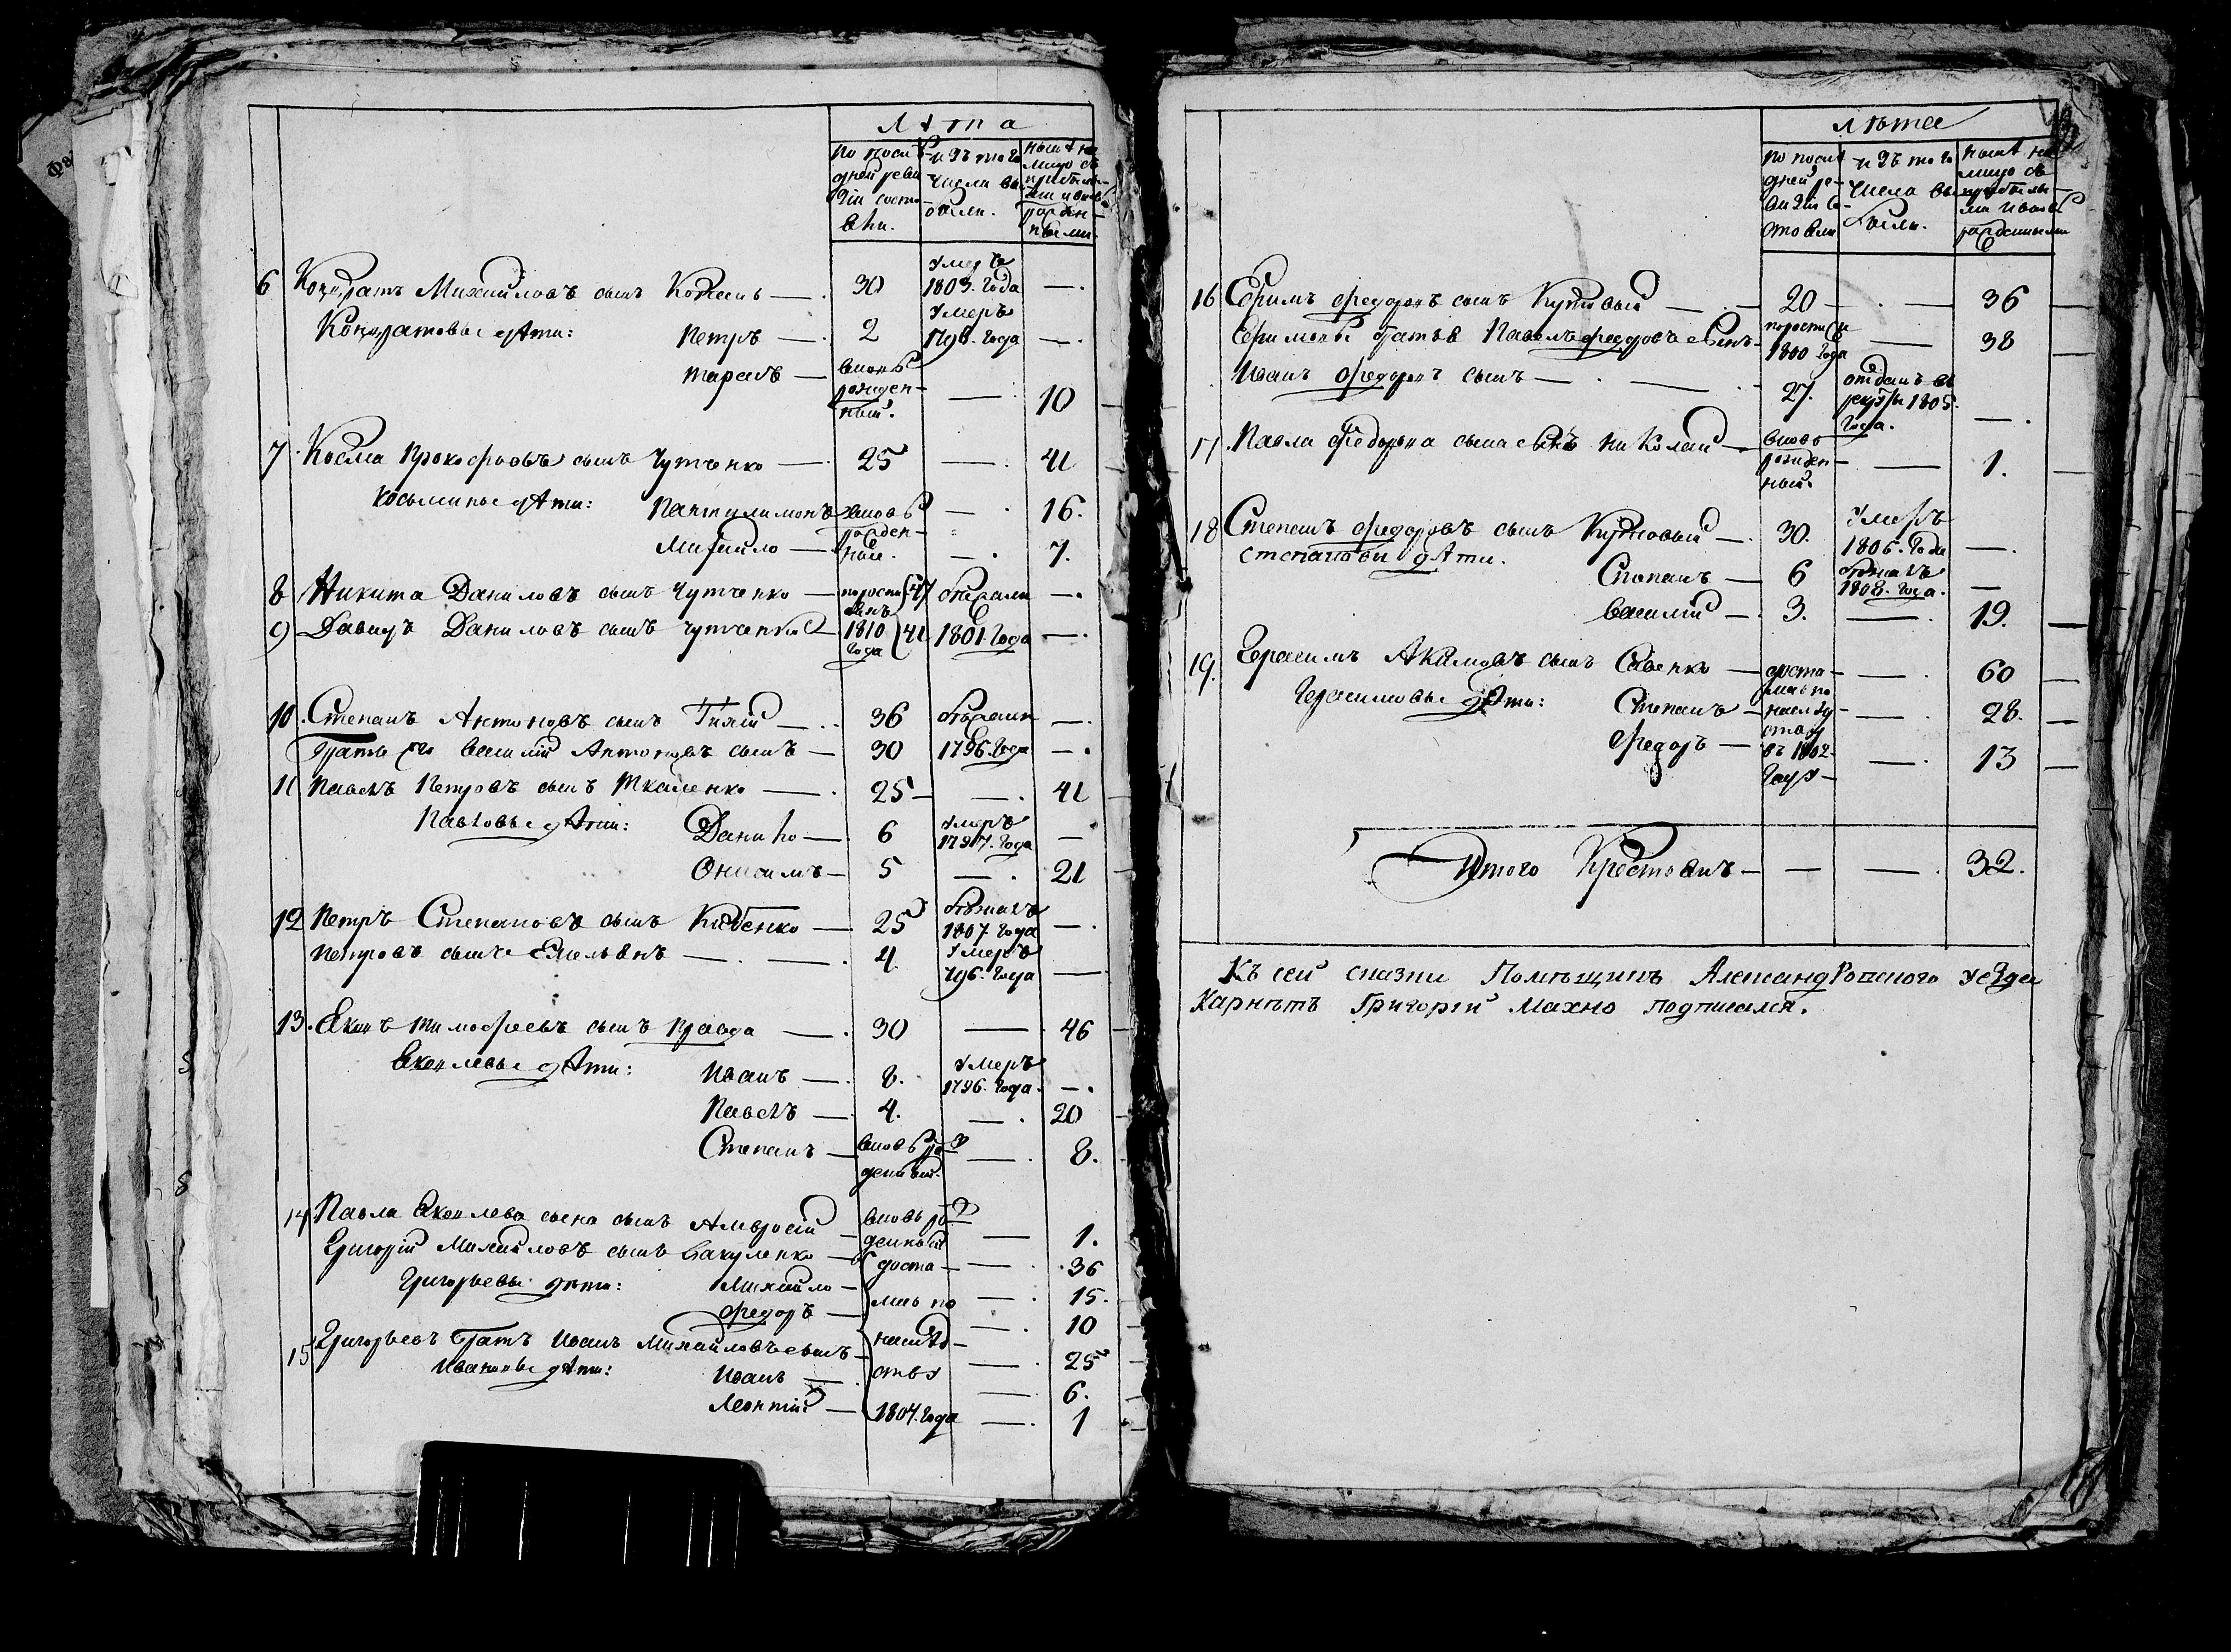 Лѣта
По послѣдней ревизіи состояли.
изъ того числа выбыли.
нынѣ на лицо съ прибылыми и вновь рожденными.
6 Кондратъ Михайловъ сынъ — 30 умеръ 1803. года —.
Кондратовы дѣти: Петръ — 2 умеръ 798. года —.
Тарасъ — вновь рожденный. — 10
7 Косма Прокофьевъ сынъ Чутченко — 25 — 41
Косьмины дѣти: Пантилимонъ вновь — 16.
Михайло — рожденные. — 7.
8 Никита Даниловъ сынъ Чутченко — 47 —.
9 Давидъ Даниловъ сынъ Чутченко — 1810 года 41 1801. года —.
10. Степанъ Антоновъ сынъ — 36 —.
братъ его Василій Антоновъ сынъ — 30 1796. года —.
11 Павелъ Петровъ сынъ Ткаченко — 25 — 41
Павловы дѣти: Данило — 6 умеръ 1797. года —.
Онисимъ — 5 — 21
12 Петръ Степановъ сынъ — 25 бѣжалъ 1807. года —.
Петровъ сынъ Емельянъ — 4. умеръ 796. года —
13. Яковъ Тимофѣевъ сынъ Правда — 30 — 46
Яковлевы дѣти: Иванъ — 8. умеръ 1796. года. —.
Павелъ — 4. — 20
Степанъ — вновь рожденный. — 8.
14 Павла Яковлева сына сынъ Амвросій — вновь рожденный — 1.
Григорій Михайловъ сынъ Бакуленко — доста — 36
Григорьевы дѣти: Михайло — лись по — 15.
Федоръ — 10
15 Григорьевъ братъ Иванъ Михайловъ сынъ — наслѣд — 25
Ивановы дѣти: Иванъ — ству — 6.
Леонтій — 1804. года — 1
Лѣта
По послѣдней ревизіи состояли
изъ того числа выбыли.
нынѣ на лицо съ прибылыми и вновь рожденными
16 Ефимъ Федоровъ сынъ Кутовый — 20 — 36
Ефимовъ братъ Павелъ Федоровъ сынъ — 1800 года — 38
Иванъ Федоровъ сынъ — 27. отданъ въ рекруты 1805. года. —.
17 Павла Федорова сына сынъ Николай — вновь рожденный. — 1.
18 Степанъ Федоровъ сынъ Кутовый — 30. умеръ 1806. года —.
Степановы дѣти. Степанъ — 6 бѣжалъ 1808. года. —
Василій — 3. — 19.
19. Герасимъ Акимовъ сынъ Савенко — доста — 60
Герасимовы дѣти: Степанъ — лись по наслѣд — 28.
Федоръ — ству въ 1802. году — 13
Итого Крестьянъ — — — 32.
Къ сей сказки Помѣщикъ Александровского уезда
Карнетъ Григорій Махно подписался.